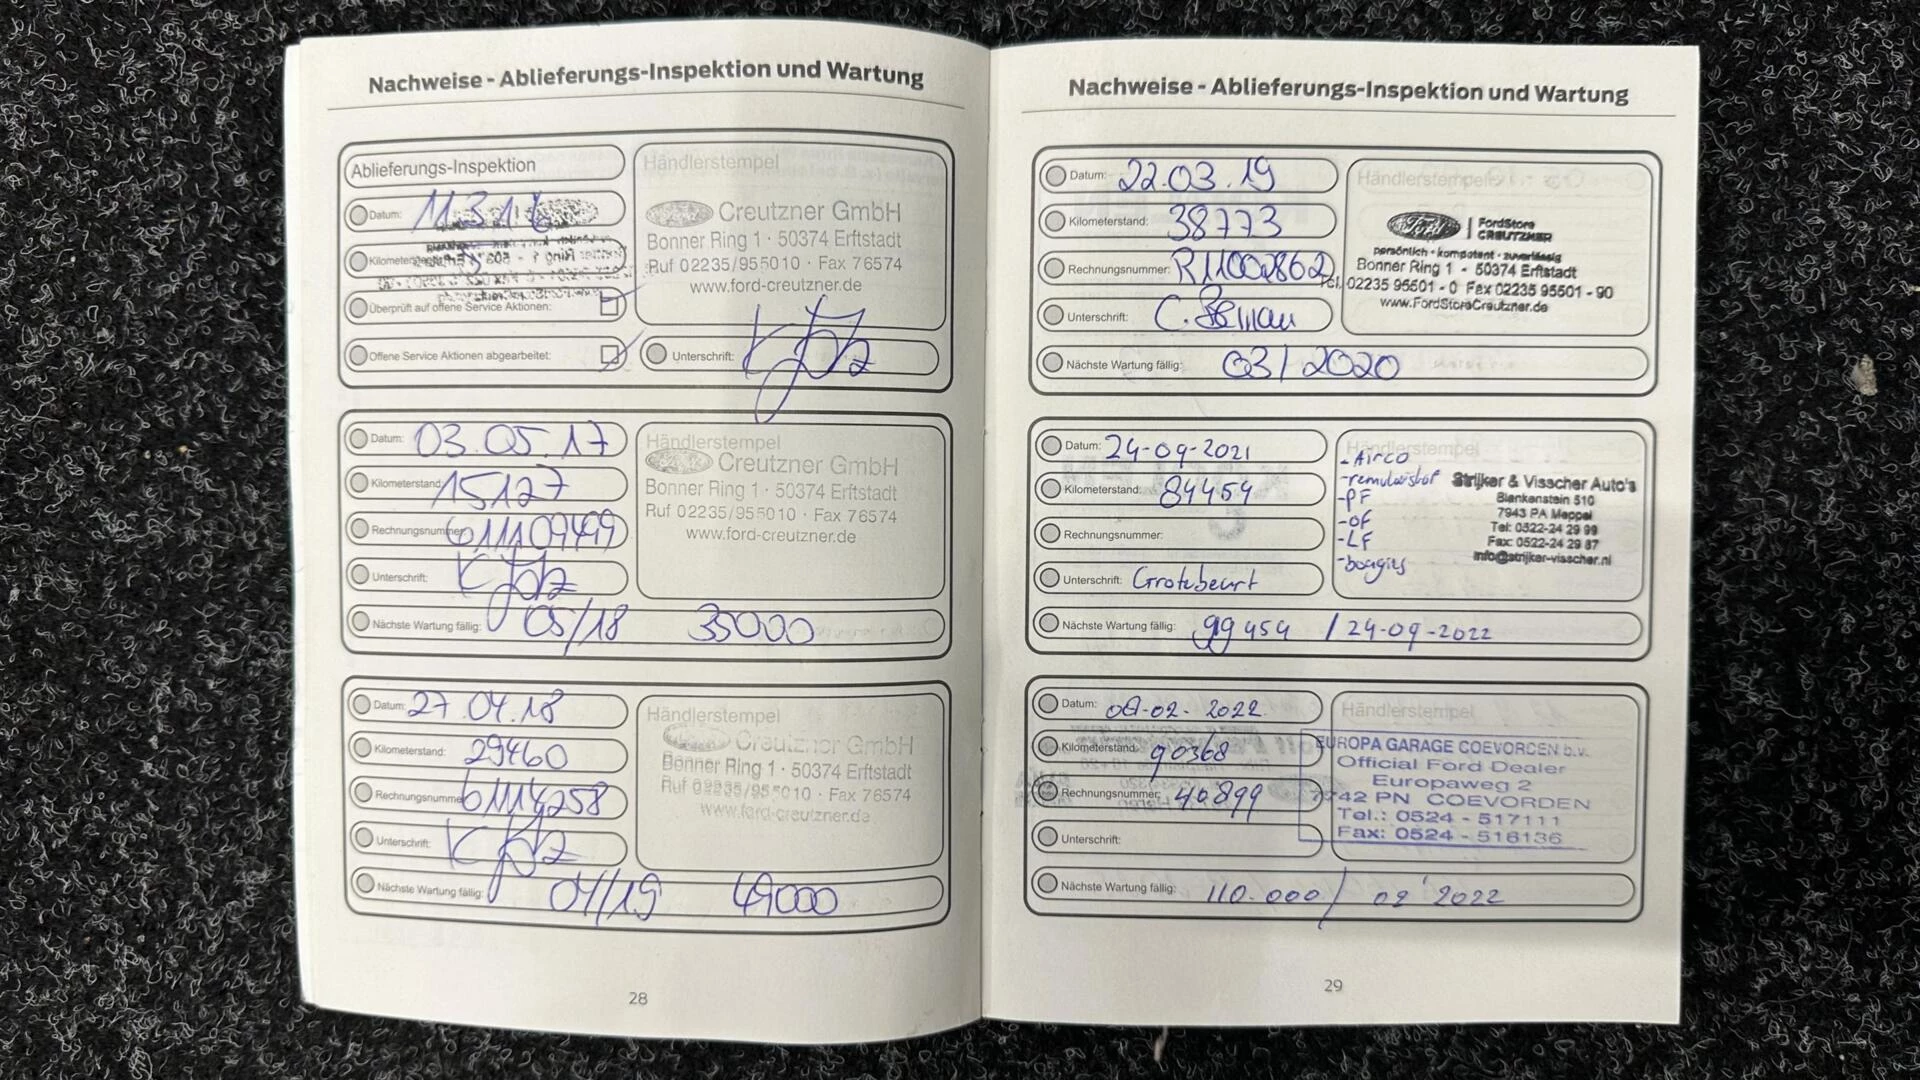 Nachweise - Ablieferungs-Inspektion und Wartung
Ablieferungs-Inspektion
Datum: 11.3.16
Überprüft auf offene Service Aktionen:
Offene Service Aktionen abgearbeitet:
Händlerstempel
Ford Creutzner GmbH
Bonner Ring 1 · 50374 Erftstadt
Ruf 02235/955010 · Fax 76574
www.ford-creutzner.de
Unterschrift:
Datum: 03.05.17
Kilometerstand: 15127
Rechnungsnummer: 611109499
Unterschrift:
Nächste Wartung fällig: 05/18 35000
Händlerstempel
Ford Creutzner GmbH
Bonner Ring 1 · 50374 Erftstadt
Ruf 02235/955010 · Fax 76574
www.ford-creutzner.de
Datum: 27.04.18
Kilometerstand: 29460
Rechnungsnummer: 61114258
Unterschrift:
Nächste Wartung fällig: 04/19 49000
Händlerstempel
Creutzner GmbH
Bonner Ring 1 · 50374 Erftstadt
Ruf 02235/955010 · Fax 76574
www.ford-creutzner.de
28
Nachweise - Ablieferungs-Inspektion und Wartung
Datum: 22.03.19
Kilometerstand: 38773
Rechnungsnummer: R11002862
Unterschrift:
Nächste Wartung fällig: 03/2020
Händlerstempel
Ford FordStore
CREUTZNER
persönlich · kompetent · zuverlässig
Bonner Ring 1 - 50374 Erftstadt
Tel. 02235 95501 - 0 Fax 02235 95501 - 90
www.FordStoreCreutzner.de
Datum: 24-09-2021
Kilometerstand: 84454
Rechnungsnummer:
Unterschrift: Grotebeurt
Nächste Wartung fällig: 99454 / 24-09-2022
Händlerstempel
- Airco
- remvloeistof
- PF
- OF
- LF
- bougies
Strijker & Visscher Auto's
Blankenstein 510
7943 PA Meppel
Tel: 0522-24 29 99
Fax: 0522-24 29 87
info@strijker-visscher.nl
Datum: 08-02-2022
Kilometerstand: 90368
Rechnungsnummer: 40899
Unterschrift:
Nächste Wartung fällig: 110.000 / 02 '2022
Händlerstempel
EUROPA GARAGE COEVORDEN b.v.
Official Ford Dealer
Europaweg 2
7742 PN COEVORDEN
Tel.: 0524 - 517111
Fax: 0524 - 516136
29